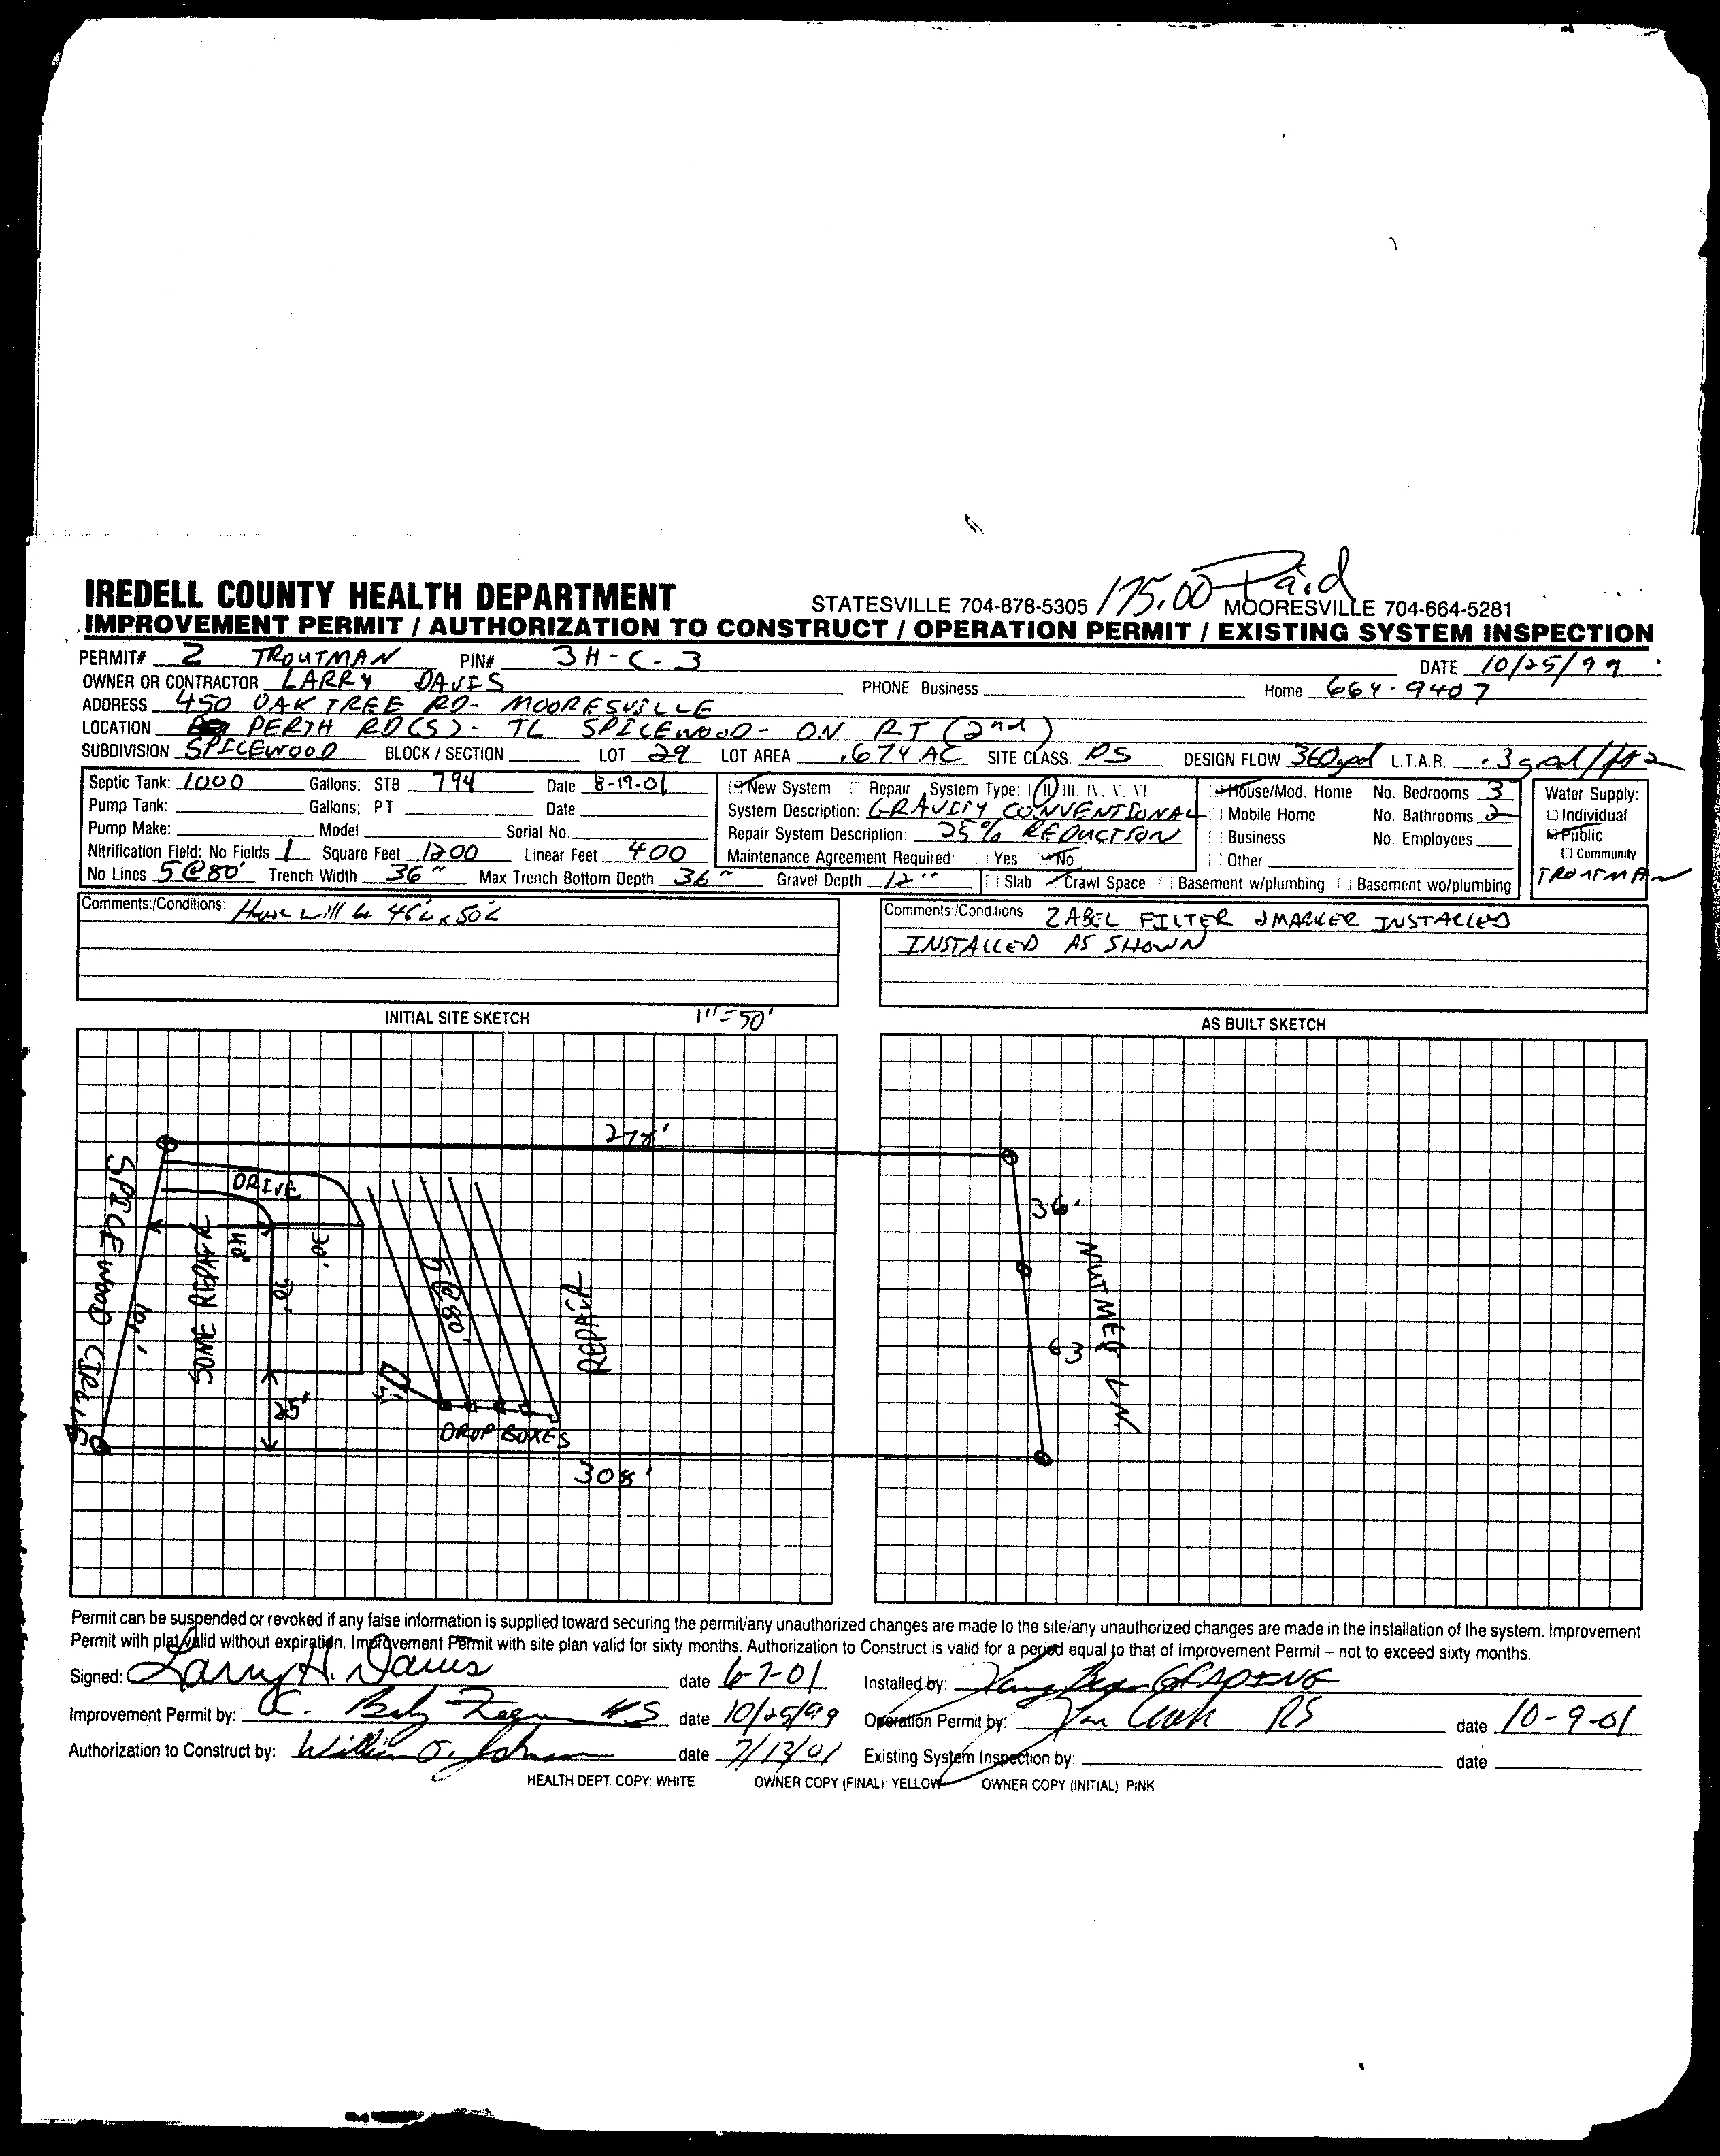 175.00 Paid
IREDELL COUNTY HEALTH DEPARTMENT STATESVILLE 704-878-5305 MOORESVILLE 704-664-5281
IMPROVEMENT PERMIT / AUTHORIZATION TO CONSTRUCT / OPERATION PERMIT / EXISTING SYSTEM INSPECTION
PERMIT# 2 TROUTMAN PIN# 3H-C-3 DATE 10/25/99
OWNER OR CONTRACTOR LARRY DAVIS PHONE: Business Home 664-9407
ADDRESS 450 OAK TREE RD- MOORESVILLE
LOCATION PERTH RD(S)- TL SPICEWOOD- ON RT (2nd)
SUBDIVISION SPICEWOOD BLOCK / SECTION LOT 29 LOT AREA .674 AC SITE CLASS. PS DESIGN FLOW 360gpd L.T.A.R. .3gal/ft2
Septic Tank: 1000 Gallons; STB 794 Date 8-19-01
Pump Tank: Gallons; PT Date
Pump Make: Model Serial No.
Nitrification Field: No Fields 1 Square Feet 1200 Linear Feet 400
No Lines 5@80' Trench Width 36" Max Trench Bottom Depth 36" Gravel Depth 12"
New System Repair System Type: I II III. IV. V. VI
System Description: GRAVITY CONVENTIONAL
Repair System Description: 25% REDUCTION
Maintenance Agreement Required: Yes No
House/Mod. Home No. Bedrooms 3
Mobile Home No. Bathrooms 2
Business No. Employees
Other
Slab Crawl Space Basement w/plumbing Basement wo/plumbing
Water Supply:
Individual
Public
Community
TROUTMAN
Comments:/Conditions: House will be 46'w x 50'L
Comments:/Conditions ZABEL FILTER & MARKER INSTALLED
INSTALLED AS SHOWN
INITIAL SITE SKETCH 1"=50'
AS BUILT SKETCH
278'
DRIVE
SPICEWOOD CIRCLE
101'
SOME REPAIR
40'
30'
70'
25'
5@80'
REPAIR
DROP BOXES
308'
36'
63
NUTMEG LN.
Permit can be suspended or revoked if any false information is supplied toward securing the permit/any unauthorized changes are made to the site/any unauthorized changes are made in the installation of the system. Improvement
Permit with plat valid without expiration. Improvement Permit with site plan valid for sixty months. Authorization to Construct is valid for a period equal to that of Improvement Permit – not to exceed sixty months.
Signed: Larry H. Davis date 6-7-01 Installed by: GRADING
Improvement Permit by: date 10/25/99 Operation Permit by: RS date 10-9-01
Authorization to Construct by: William O. Johnson date 7/13/01 Existing System Inspection by: date
HEALTH DEPT. COPY: WHITE OWNER COPY (FINAL) YELLOW OWNER COPY (INITIAL) PINK